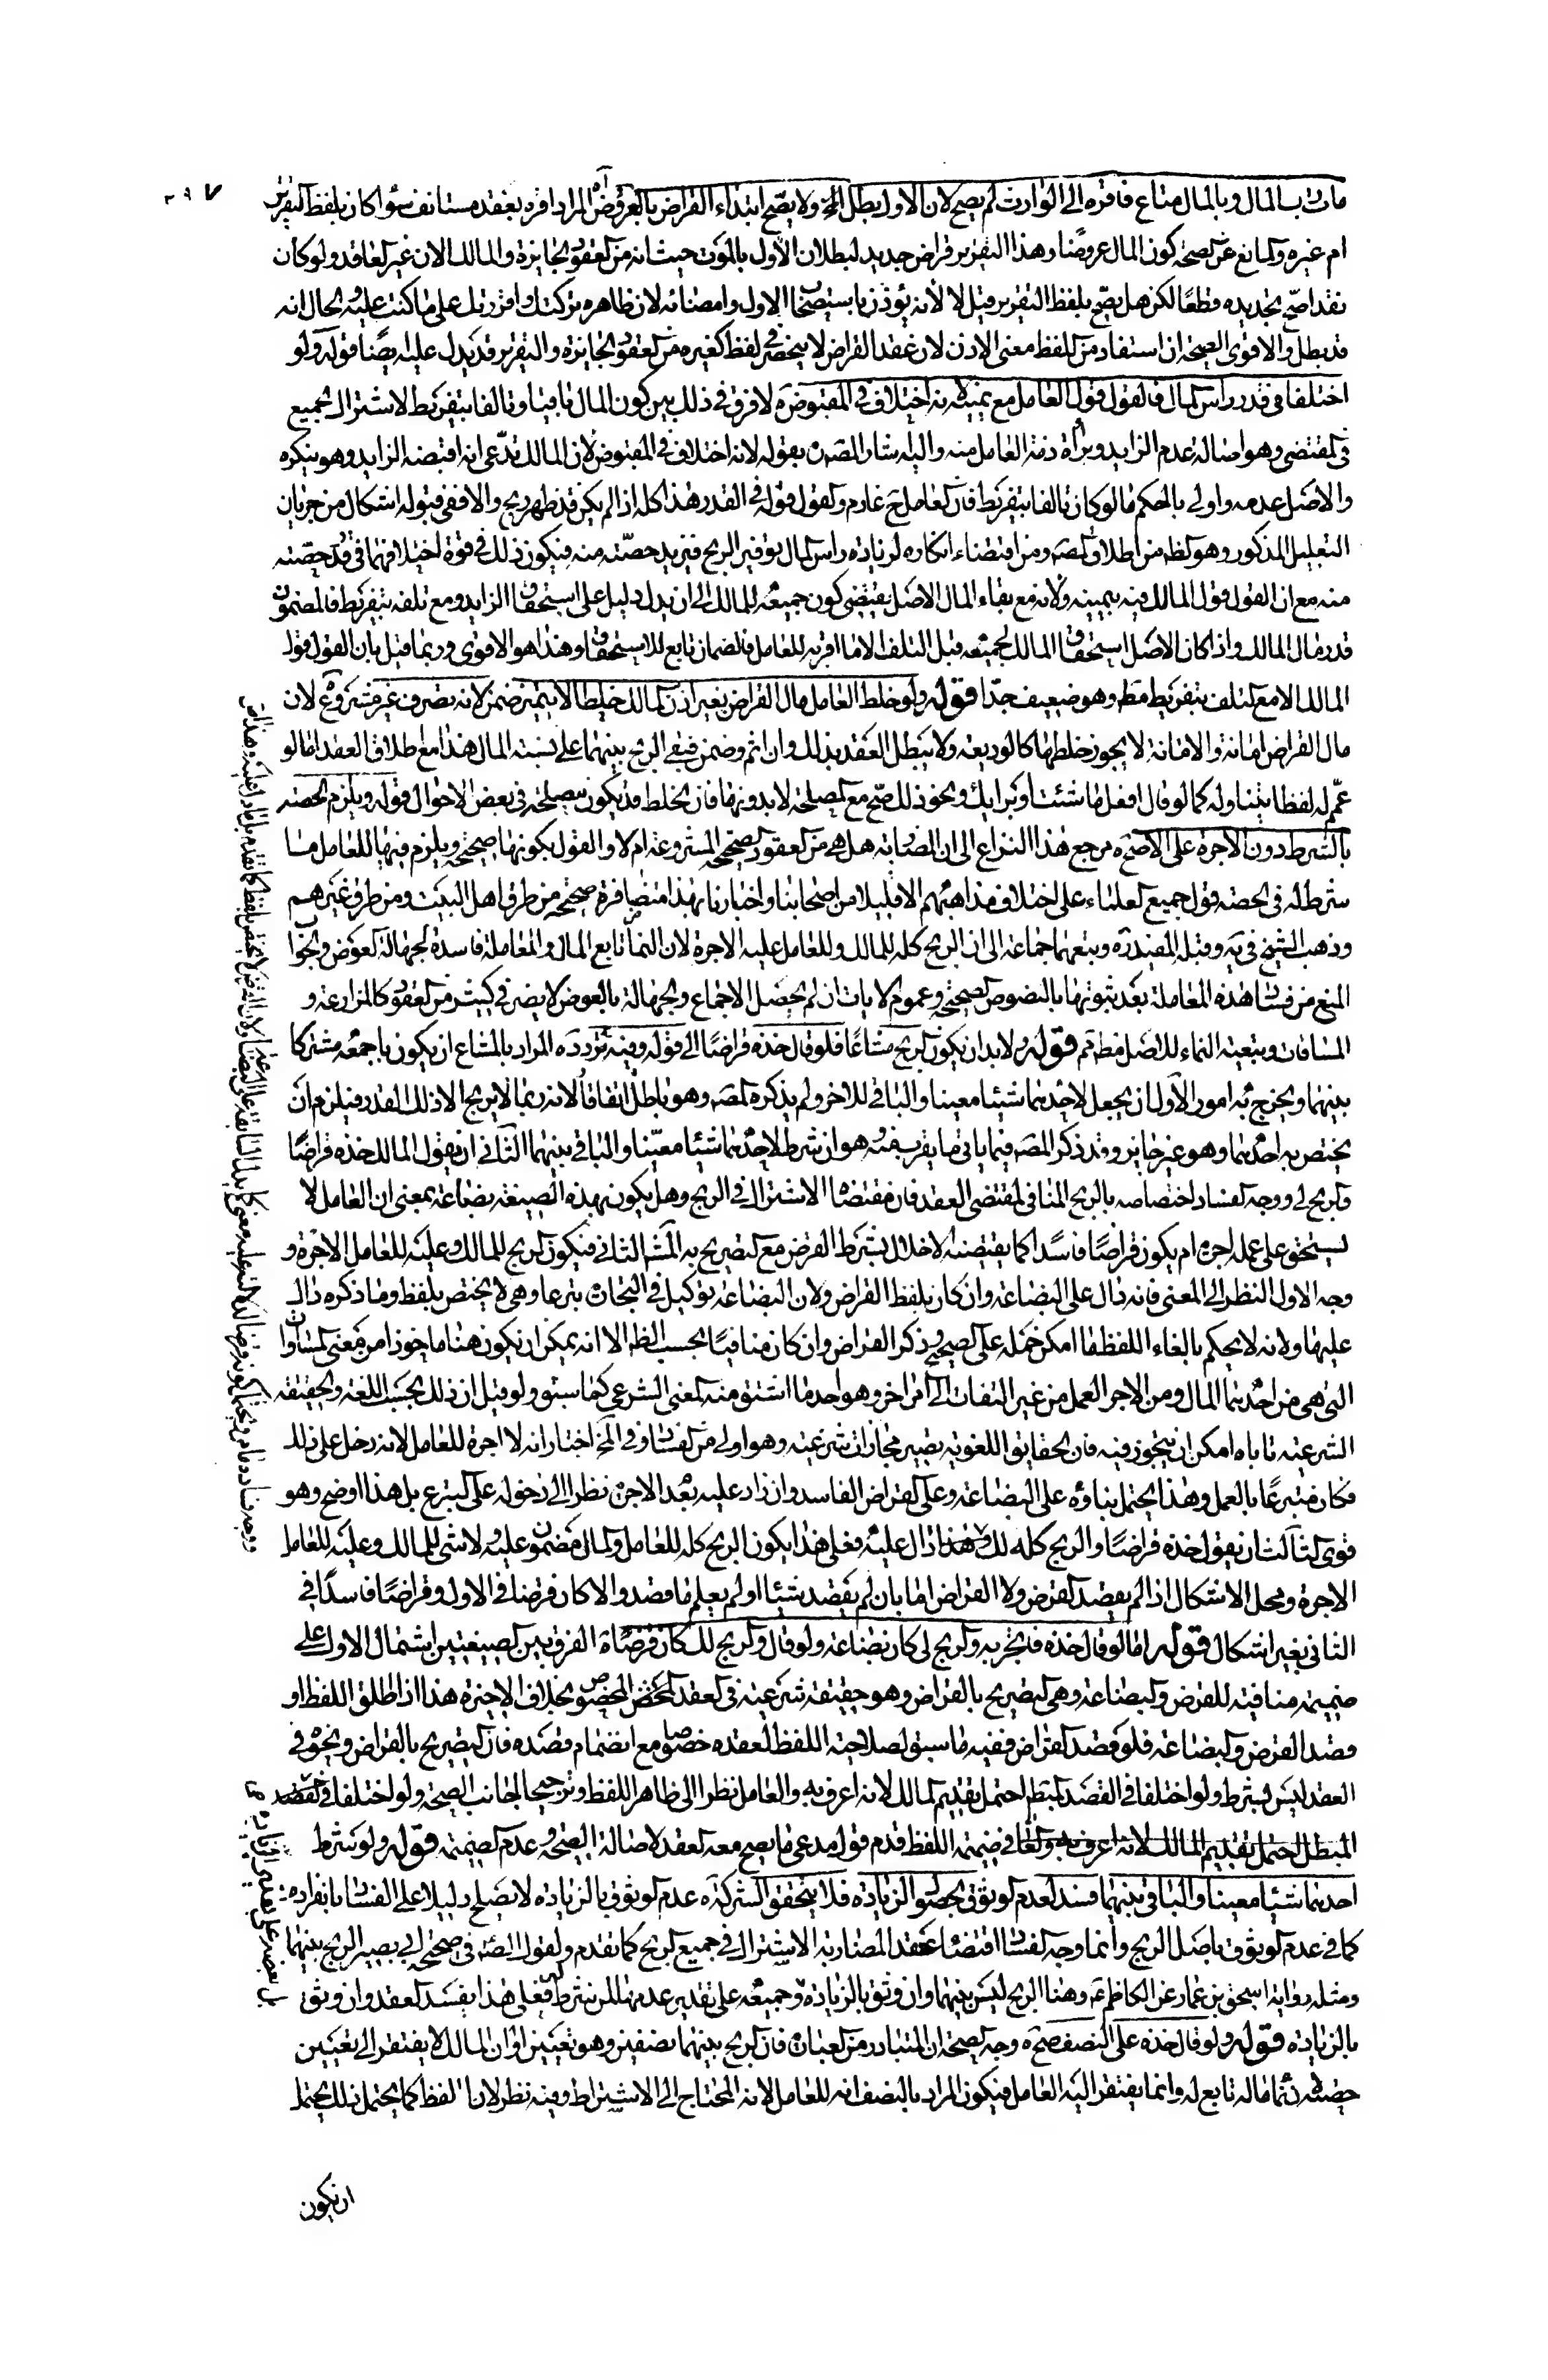 ٣٩٧
مات رب المال وبالمال متاع فاقره الى الوارث لم يصح لان الاول بطل الخ ولا يصح ابتداء القراض بالعروض اه المراد اقره بعقد مستانف سواء كان بلفظ التقرير
ام غيره والمانع عن الصحة كون المال عروضا وهذا التقرير قراض جديد لبطلان الاول بالموت حيث انه من العقود الجايزة والمالك الان غير العاقد ولو كان
نقدا صح تجديده قطعا لكن هل يصح بلفظ التقرير قيل لا لانه يؤذن باستصحاب الاول وامضائه لان ظاهره تركتك واقررتك على ما كنت عليه والحال انه
قد بطل والاقوى الصحة ان استفاد من اللفظ معنى الاذن لان عقد القراض لا ينحصر في لفظ كغيره من العقود الجايزة والتقرير قد يدل عليه ايضا قوله ولو
اختلفا في قدر راس المال فالقول قول العامل مع يمينه لانه اختلاف في المقبوض ه لا فرق في ذلك بين كون المال باقيا وتالفا بتفريط لاشتراك الجميع
في المقتضي وهو اصالة عدم الزايد وبراة ذمة العامل منه واليه اشار المصه بقوله لانه اختلاف في المقبوض لان المالك يدعي انه اقبضه الزايد وهو ينكره
والاصل عدمه واولى بالحكم ما لو كان تالفا بتفريط فان العامل ح غارم والقول قوله في القدر هذا كله اذا لم يكن قد ظهر ربح والا ففي قبوله اشكال من جريان
التعليل المذكور وهو الظ من اطلاق المصه ومن اقتضاء انكاره لزيادة راس المال توفير الربح فيزيد حصته منه فيكون ذلك في قوة اختلافهما في قدر حصته
منه مع ان القول قول المالك فيه بيمينه ولانه مع بقاء المال الاصل يقتضي كون جميعه للمالك الى ان يدل دليل على استحقاق الزايد ومع تلفه بتفريط فالمضمون
قدر مال المالك واذا كان الاصل استحقاق المالك لجميعه قبل التلف الا ما اقر به للعامل فالضمان تابع للاستحقاق وهذا هو الاقوى وربما قيل بان القول قول
المالك الا مع التلف بتفريط مط وهو ضعيف جدا قوله ولو خلط العامل مال القراض بغير اذن المالك خليطا لا يتميز ضمن لانه تصرف غير مشروع لان
مال القراض امانة والامانة لا يجوز خلطها كالوديعة ولا يبطل العقد بذلك وان اثم وضمن فيبقى الربح بينهما على نسبة المال هذا مع اطلاق العقد اما لو
عمم له لفظا يتناوله كما لو قال افعل ما شئت او برايك ونحو ذلك صح مع المصلحة لا بدونها فان الخلط قد يكون مصلحة في بعض الاحوال قوله ويلزم الحصة
بالشرط دون الاجرة على الاصح ه مرجع هذا النزاع الى ان المضاربة هل هي من العقود الصحيحة المشروعة ام لا والقول بكونها صحيحة ويلزم فيها للعامل ما
شرط له في الحصة قول جميع العلماء على اختلاف مذاهبهم الا قليلا من اصحابنا واخبارنا بهذا متضافرة صحيحة من طرق اهل البيت ومن طرق غيرهم
وذهب الشيخ في يه وقبله المفيد ره وتبعهما جماعة الى ان الربح كله للمالك وللعامل عليه الاجرة لان النماء تابع المال والمعاملة فاسدة لجهالة العوض والجواب
المنع من فساد هذه المعاملة بعد ثبوتها بالنصوص الصحيحة وعموم الايات ان لم يحصل الاجماع والجهالة بالعوض لا يضر في كثير من العقود كالمزارعة و
المساقات وتبعية النماء للاصل مط ثم قوله ولا بد ان يكون الربح مشاعا فلو قال خذه قراضا الى قوله وفيه تردد ه المراد بالمشاع ان يكون باجمعه مشتركا
بينهما ويخرج به امور الاول ان يجعل لاحدهما شيئا معينا والباقي للاخر ولم يذكره المصه وهو باطل اتفاقا لانه ربما لا يربح الا ذلك القدر فيلزم ان
يختص به احدهما وهو غير جايز وقد ذكر المصه فيما ياتي ما يقرب منه وهو ان شرط لاحدهما شيئا معينا والباقي بينهما الثاني ان يقول المالك خذه قراضا
والربح لي ووجه الفساد اختصاصه بالربح المنافي لمقتضى العقد فان مقتضاه الاشتراك في الربح وهل يكون بهذه الصيغة بضاعة بمعنى ان العامل لا
يستحق على عمله اجرة ام يكون قراضا فاسدا كما يقتضيه الاخلال بشرط القرض مع التصريح به المش الثاني فيكون الربح للمالك وعليه للعامل الاجرة و
وجه الاول النظر الى المعنى فانه دال على البضاعة وان كان بلفظ القراض ولان البضاعة توكيل في التجارة تبرعا وهي لا يختص بلفظ وما ذكره دال
عليها ولانه لا يحكم بالغاء اللفظ ما امكن حمله على الصحيح وذكر القراض وان كان منافيا بحسب الظ الا انه يمكن ان يكون هنا ماخوذا من معنى المساواة
التي هي من احدهما المال ومن الاخر العمل من غير التفات الى امر اخر وهو احد ما اشتق منه المعنى الشرعي كما سبق ولو قيل ان ذلك بحسب اللغة والحقيقة
الشرعية تاباه امكن ان يتجوز فيه فان الحقايق اللغوية يصير مجازات شرعية وهو اولى من الفساد وفي المخ اختار انه لا اجرة للعامل لانه دخل على ذلك
فكان متبرعا بالعمل وهذا يحتمل بناؤه على البضاعة وعلى القراض الفاسد وان زاد عليه بعد الاجرة نظرا الى دخوله على التبرع بل هذا اوضح وهو
قوي الثالث ان يقول خذه قراضا والربح كله لك وهذا دال عليه فعلى هذا يكون الربح كله للعامل والمال مضمون عليه ولا شي للمالك وعليه للعامل
الاجرة ومحل الاشكال اذا لم يقصد القرض ولا القراض اما بان لم يقصد شيئا او لم يعلم ما قصد والا كان قرضا في الاول وقراضا فاسدا في
الثاني بغير اشكال قوله اما لو قال خذه فاتجر به والربح لي كان بضاعة ولو قال والربح لك كان قرضا ه الفرق بين الصيغتين اشتمال الاول على
ضميمة منافية للقرض والبضاعة وهي التصريح بالقراض وهو حقيقة شرعية في العقد المخصوص بخلاف الاخيرة هذا اذا اطلق اللفظ او
قصد القرض والبضاعة فلو قصد القراض ففيه ما سبق لصلاحية اللفظ لعقده خصوصا مع انضمام قصده فان التصريح بالقراض ونحوه في
العقد ليس بشرط ولو اختلفا في القصد المبطل احتمل تقديم المالك لانه اعرف به والعامل نظرا الى ظاهر اللفظ وترجيحا لجانب الصحة ولو اختلفا في قصد
المبطل احتمل تقديم المالك لانه اعرف به والعا في ضميمة اللفظ قدم قول مدعي ما يصح معه العقد لاصالة الصحة وعدم الضميمة قوله ولو شرط
احدهما شيئا معينا والباقي بينهما فسد لعدم الوثوق بحصول الزيادة فلا يتحقق الشركة ه عدم الوثوق بالزيادة لا يصلح دليلا على الفساد بانفراده
كما في عدم الوثوق باصل الربح وانما وجه الفساد اقتضاء عقد المضاربة الاشتراك في جميع الربح كما تقدم ولقول الصه في صحيحة ابي بصير الربح بينهما
ومثله رواية اسحق بن عمار عن الكاظم ع وهنا الربح ليس بينهما وان وثق بالزيادة وجميعه على تقدير عدمها لمن شرط له فعلى هذا يفسد العقد وان وثق
بالزيادة قوله ولو قال خذه على النصف صح ه وجه الصحة ان المتبادر من العبارة فان الربح بينهما نصفين وهو تعيين او ان المالك لا يفتقر الى تعيين
حصته لان نماء ماله تابع له وانما يفتقر اليه العامل فيكون المراد بالنصف انه للعامل لانه المحتاج الى الاشتراط وفيه نظر لان اللفظ كما يحتمل ذلك يحتمل
ان يكون